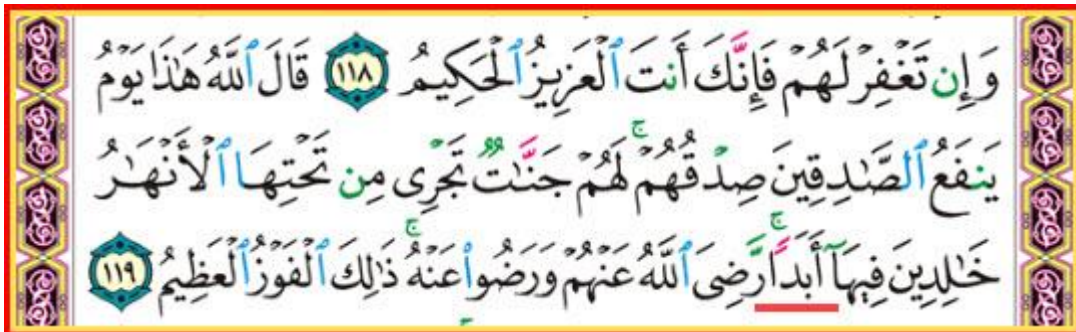 وَإِن تَغْفِرْ لَهُمْ فَإِنَّكَ أَنتَ ٱلْعَزِيزُ ٱلْحَكِيمُ ١١٨ قَالَ ٱللَّهُ هَٰذَا يَوْمُ
يَنفَعُ ٱلصَّٰدِقِينَ صِدْقُهُمْ ۚ لَهُمْ جَنَّٰتٌ تَجْرِى مِن تَحْتِهَا ٱلْأَنْهَٰرُ
خَٰلِدِينَ فِيهَآ أَبَدًا ۚ رَّضِىَ ٱللَّهُ عَنْهُمْ وَرَضُوا۟ عَنْهُ ۚ ذَٰلِكَ ٱلْفَوْزُ ٱلْعَظِيمُ ١١٩